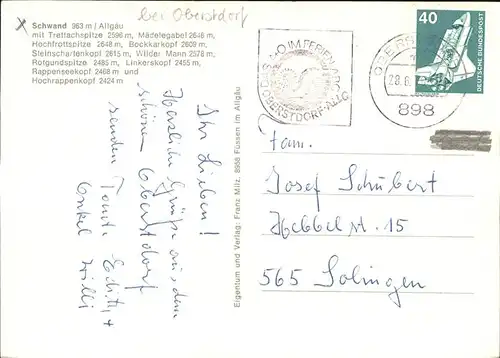 bei Oberstdorf
Schwand 963 m / Allgäu
mit Trettachspitze 2596 m, Mädelegabel 2646 m,
Hochfrottspitze 2648 m, Bockkarkopf 2609 m,
Steinschartenkopf 2615 m, Wilder Mann 2578 m,
Rotgundspitze 2485 m, Linkerskopf 2455 m,
Rappenseekopf 2468 m und
Hochrappenkopf 2424 m
Ihr Lieben!
Herzliche Grüße aus dem
schönen Oberstdorf
senden Tante Edith +
Onkel Willi
Eigentum und Verlag: Franz Milz, 8958 Füssen im Allgäu
IM FERIEN
OBERSTDORF/ALLG
898
40
DEUTSCHE BUNDESPOST
Fam.
Josef Schubert
Hebbelst. 15
565 Solingen